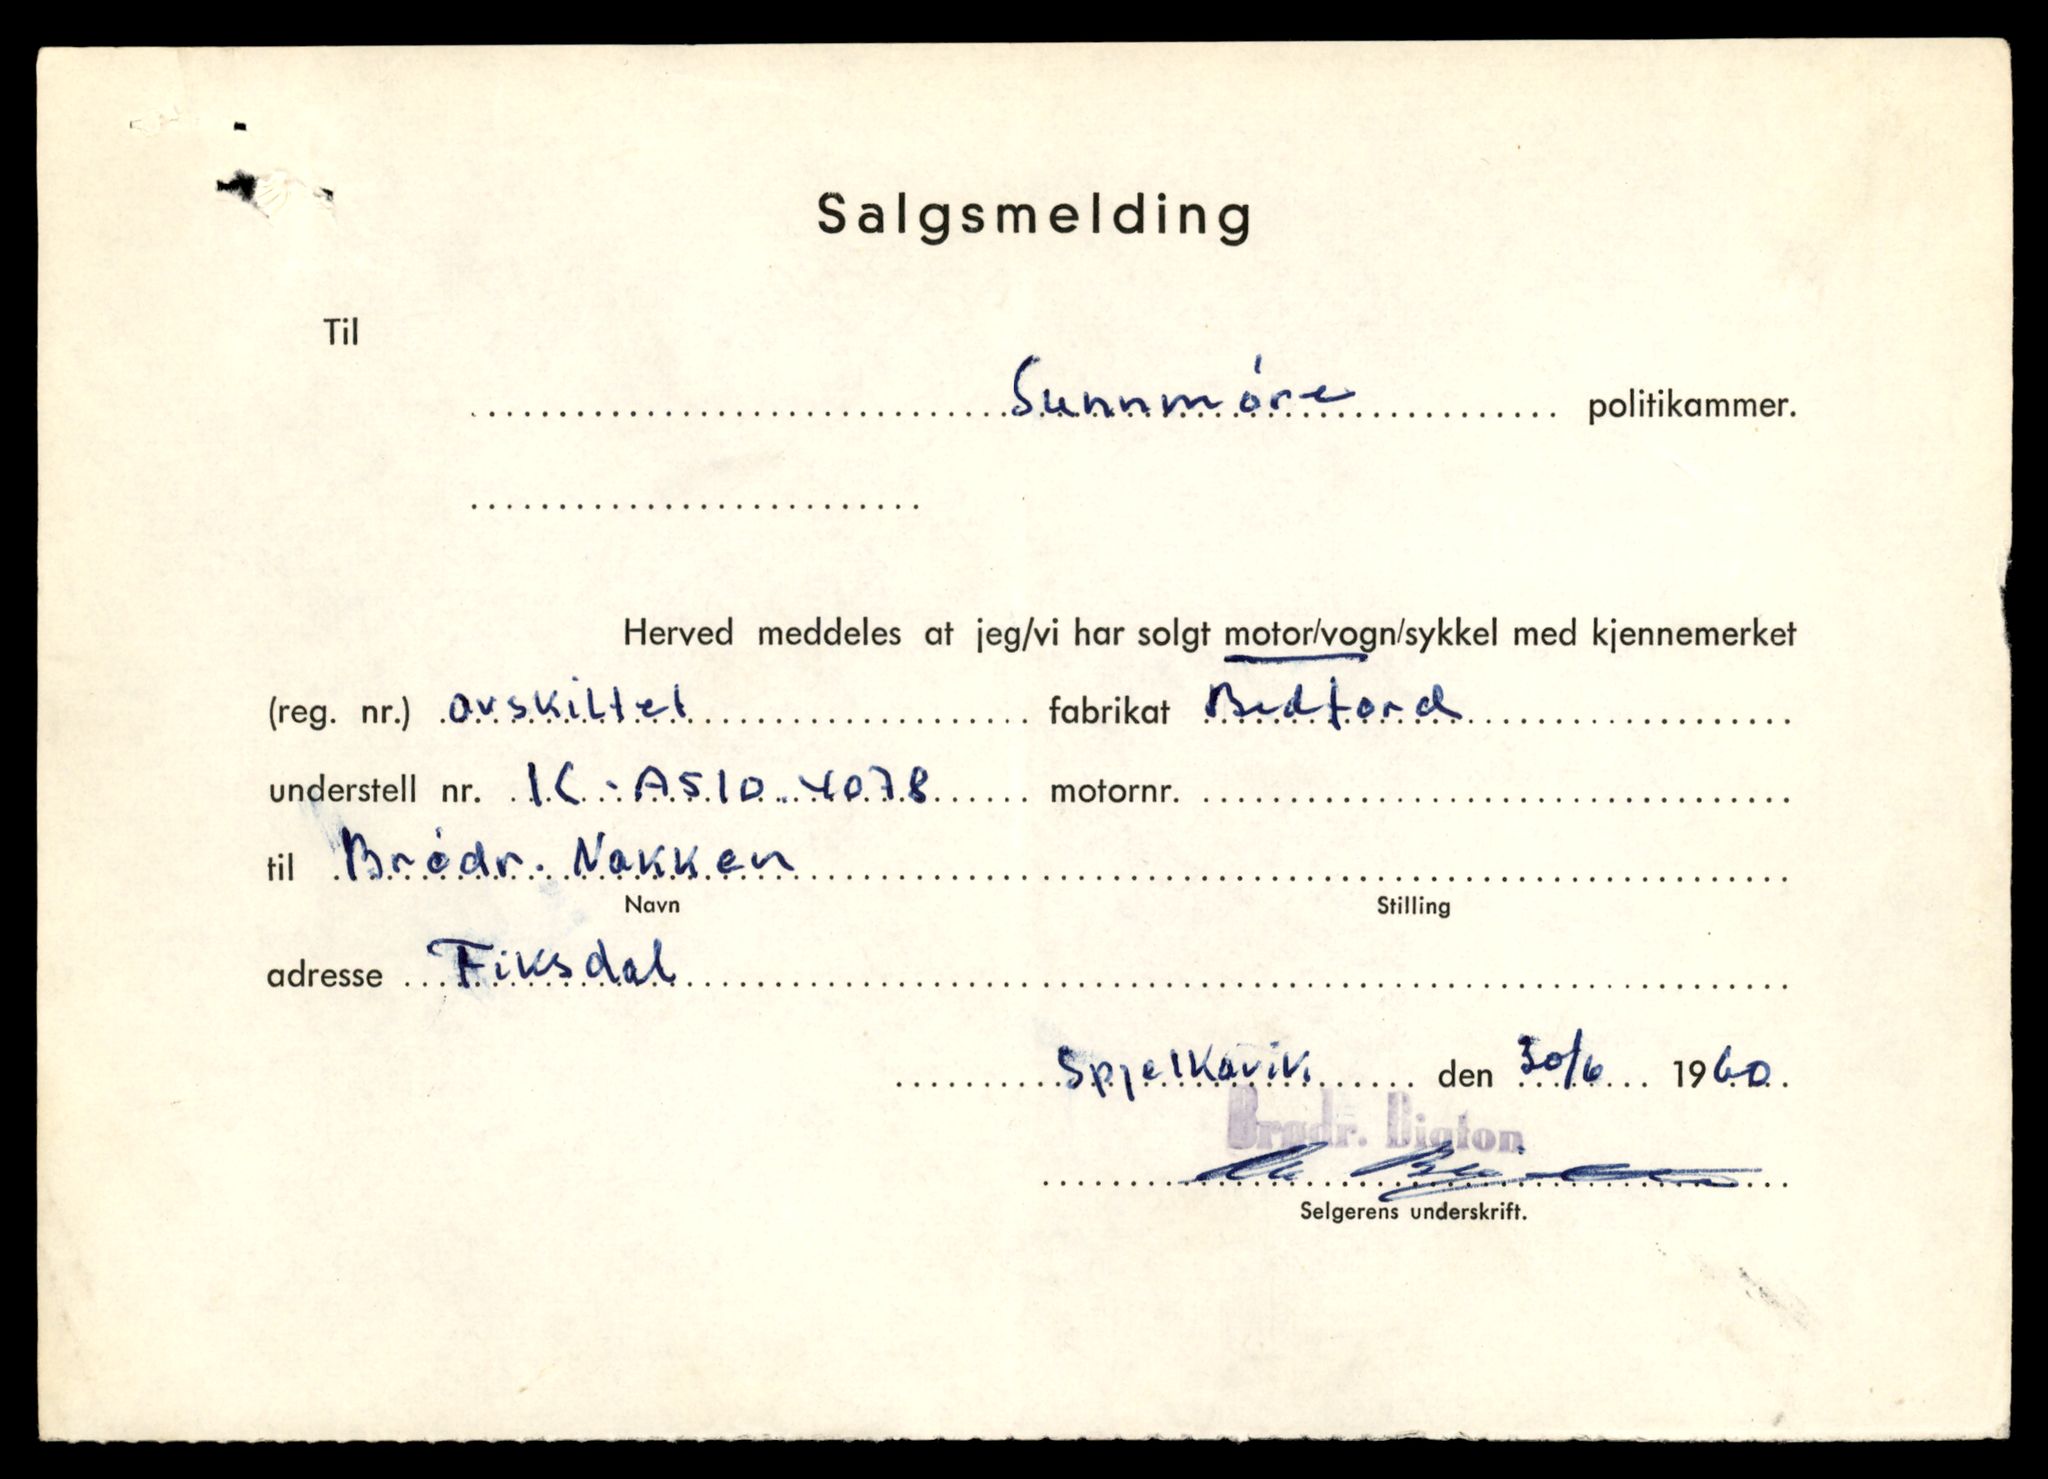 Salgsmelding
Til
Sunnmóre politikammer.
Herved meddeles at jeg/vi har solgt motor/vogn/sykkel med kjennemerket
(reg. nr.) avskiltet fabrikat Bedford
understell nr. K-A510.4078 motornr.
til Bródr. Nakken
Navn Stilling
adresse Fiksdal
Spjelkavik den 30/6 1960.
Brødr. Digton
Selgerens underskrift.